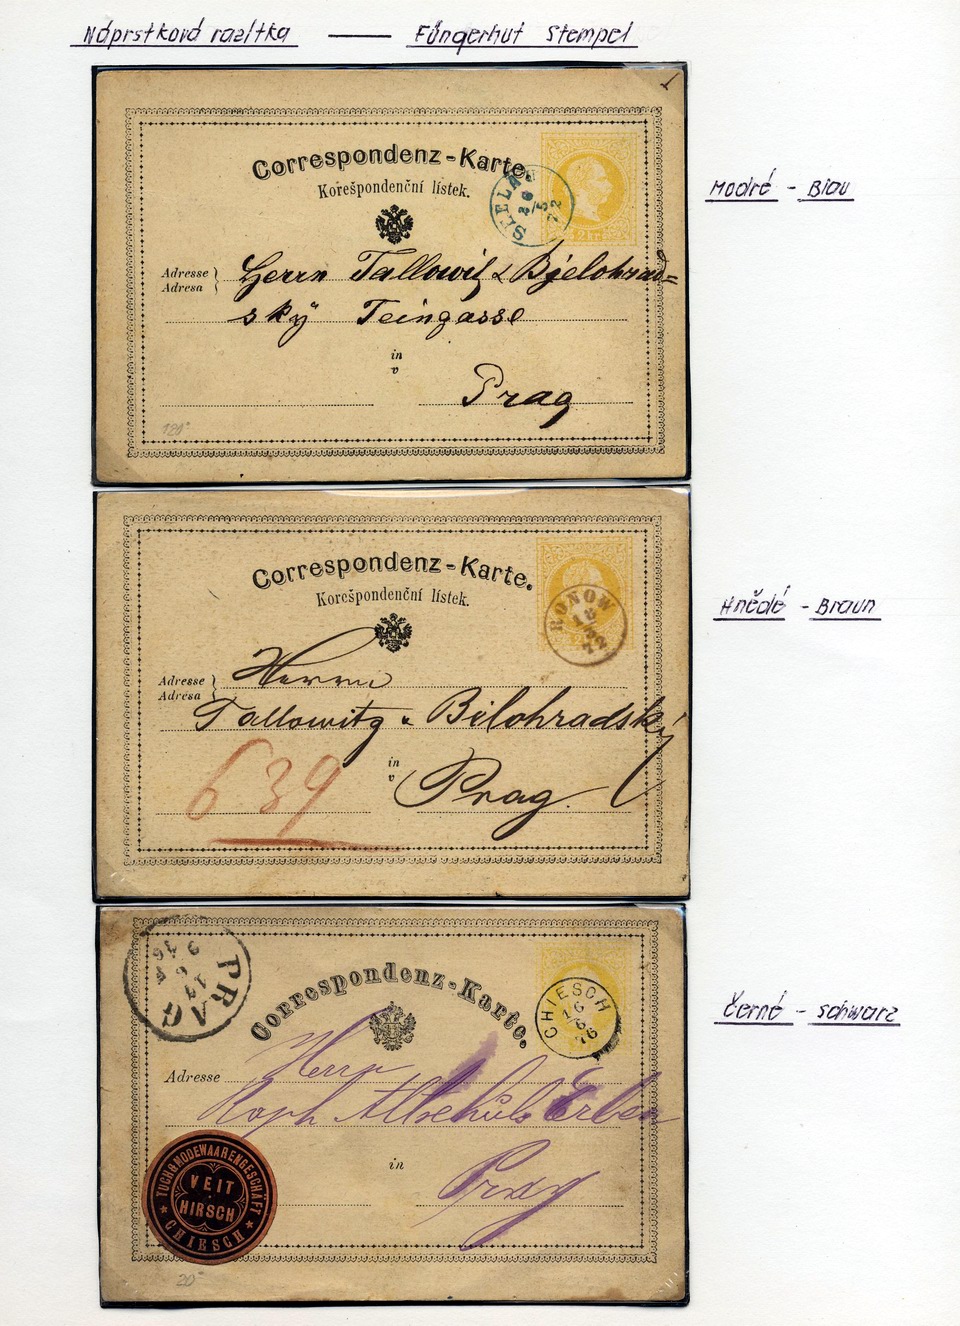 Náprstková razítka — Füngerhut Stempel
1
Correspondenz-Karte.
Korešpondenční lístek.
SEELAU
26
5
72
Modré - Blau
Adresse
Adresa
Herrn Tallowitz & Bjelohrad=
ský Teingasse
in
v
Prag
120
Correspondenz-Karte.
Korešpondenční lístek.
RONOW
72
Hnědé - Braun
Adresse
Adresa
Herrn
Tallowitz & Bělohradský
in
v
Prag.
639
PRAG
17
6
Correspondenz-Karte.
CHIESCH
16
6
76
Černé - Schwarz
Adresse
Herrn
Altschuls Erben
in
Prag
TUCH & MODEWAARENGESCHÄFT
VEIT
HIRSCH
CHIESCH
20